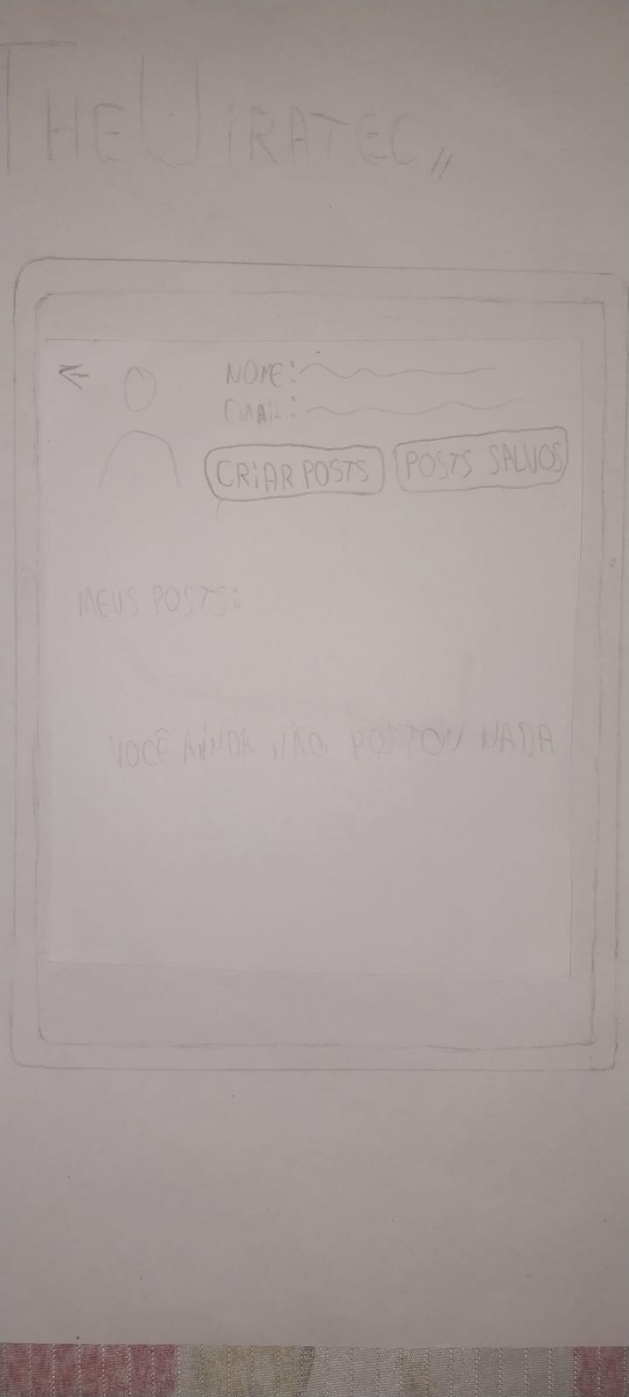 THE UIRATEC,,
NOME:
EMAIL:
CRIAR POSTS
POSTS SALVOS
MEUS POSTS:
VOCÊ AINDA NÃO POSTOU NADA